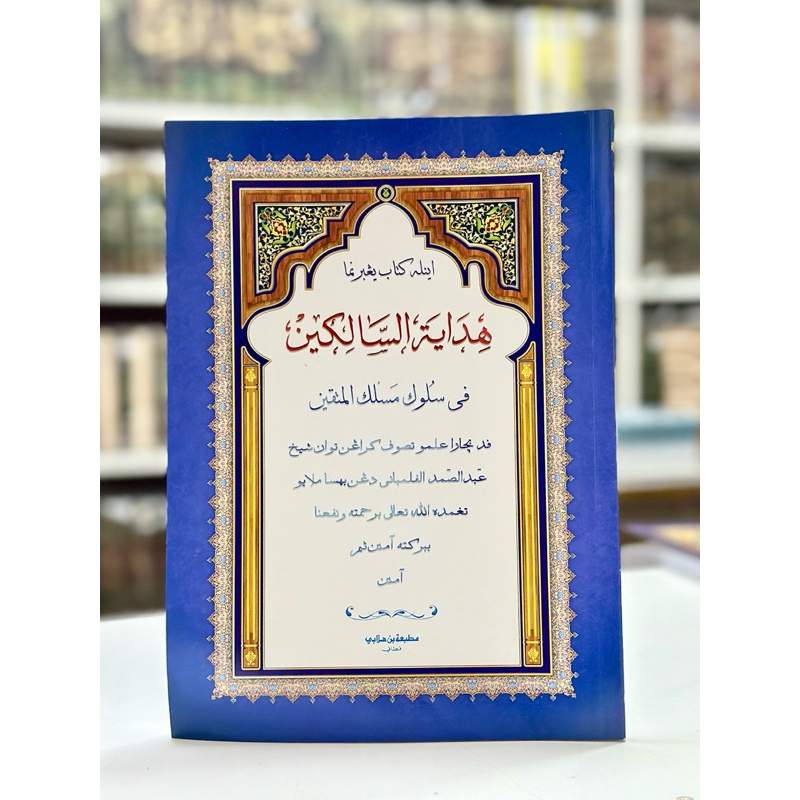 اينله كتاب يڠبرنما
هِدَايَة السَّالِكِينْ
فى سُلُوك مَسْلك المتقين
قد بچارا علمو تصوف كراڠن توان شيخ
عبد الصّمد الفلمبانى دڠن بهسا ملايو
تغمده الله تعالى برحمته ونفعنا
ببركته آمين ثم
آمين
مطبعة بن هلابي
فطاني